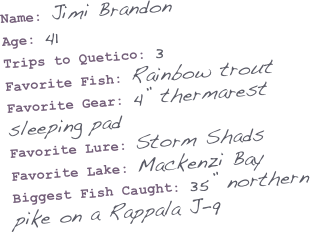 Name: Jimi Brandon
Age: 41
Trips to Quetico: 3
Favorite Fish: Rainbow trout
Favorite Gear: 4" thermarest
sleeping pad
Favorite Lure: Storm Shads
Favorite Lake: Mackenzi Bay
Biggest Fish Caught: 35" northern
pike on a Rappala J-9